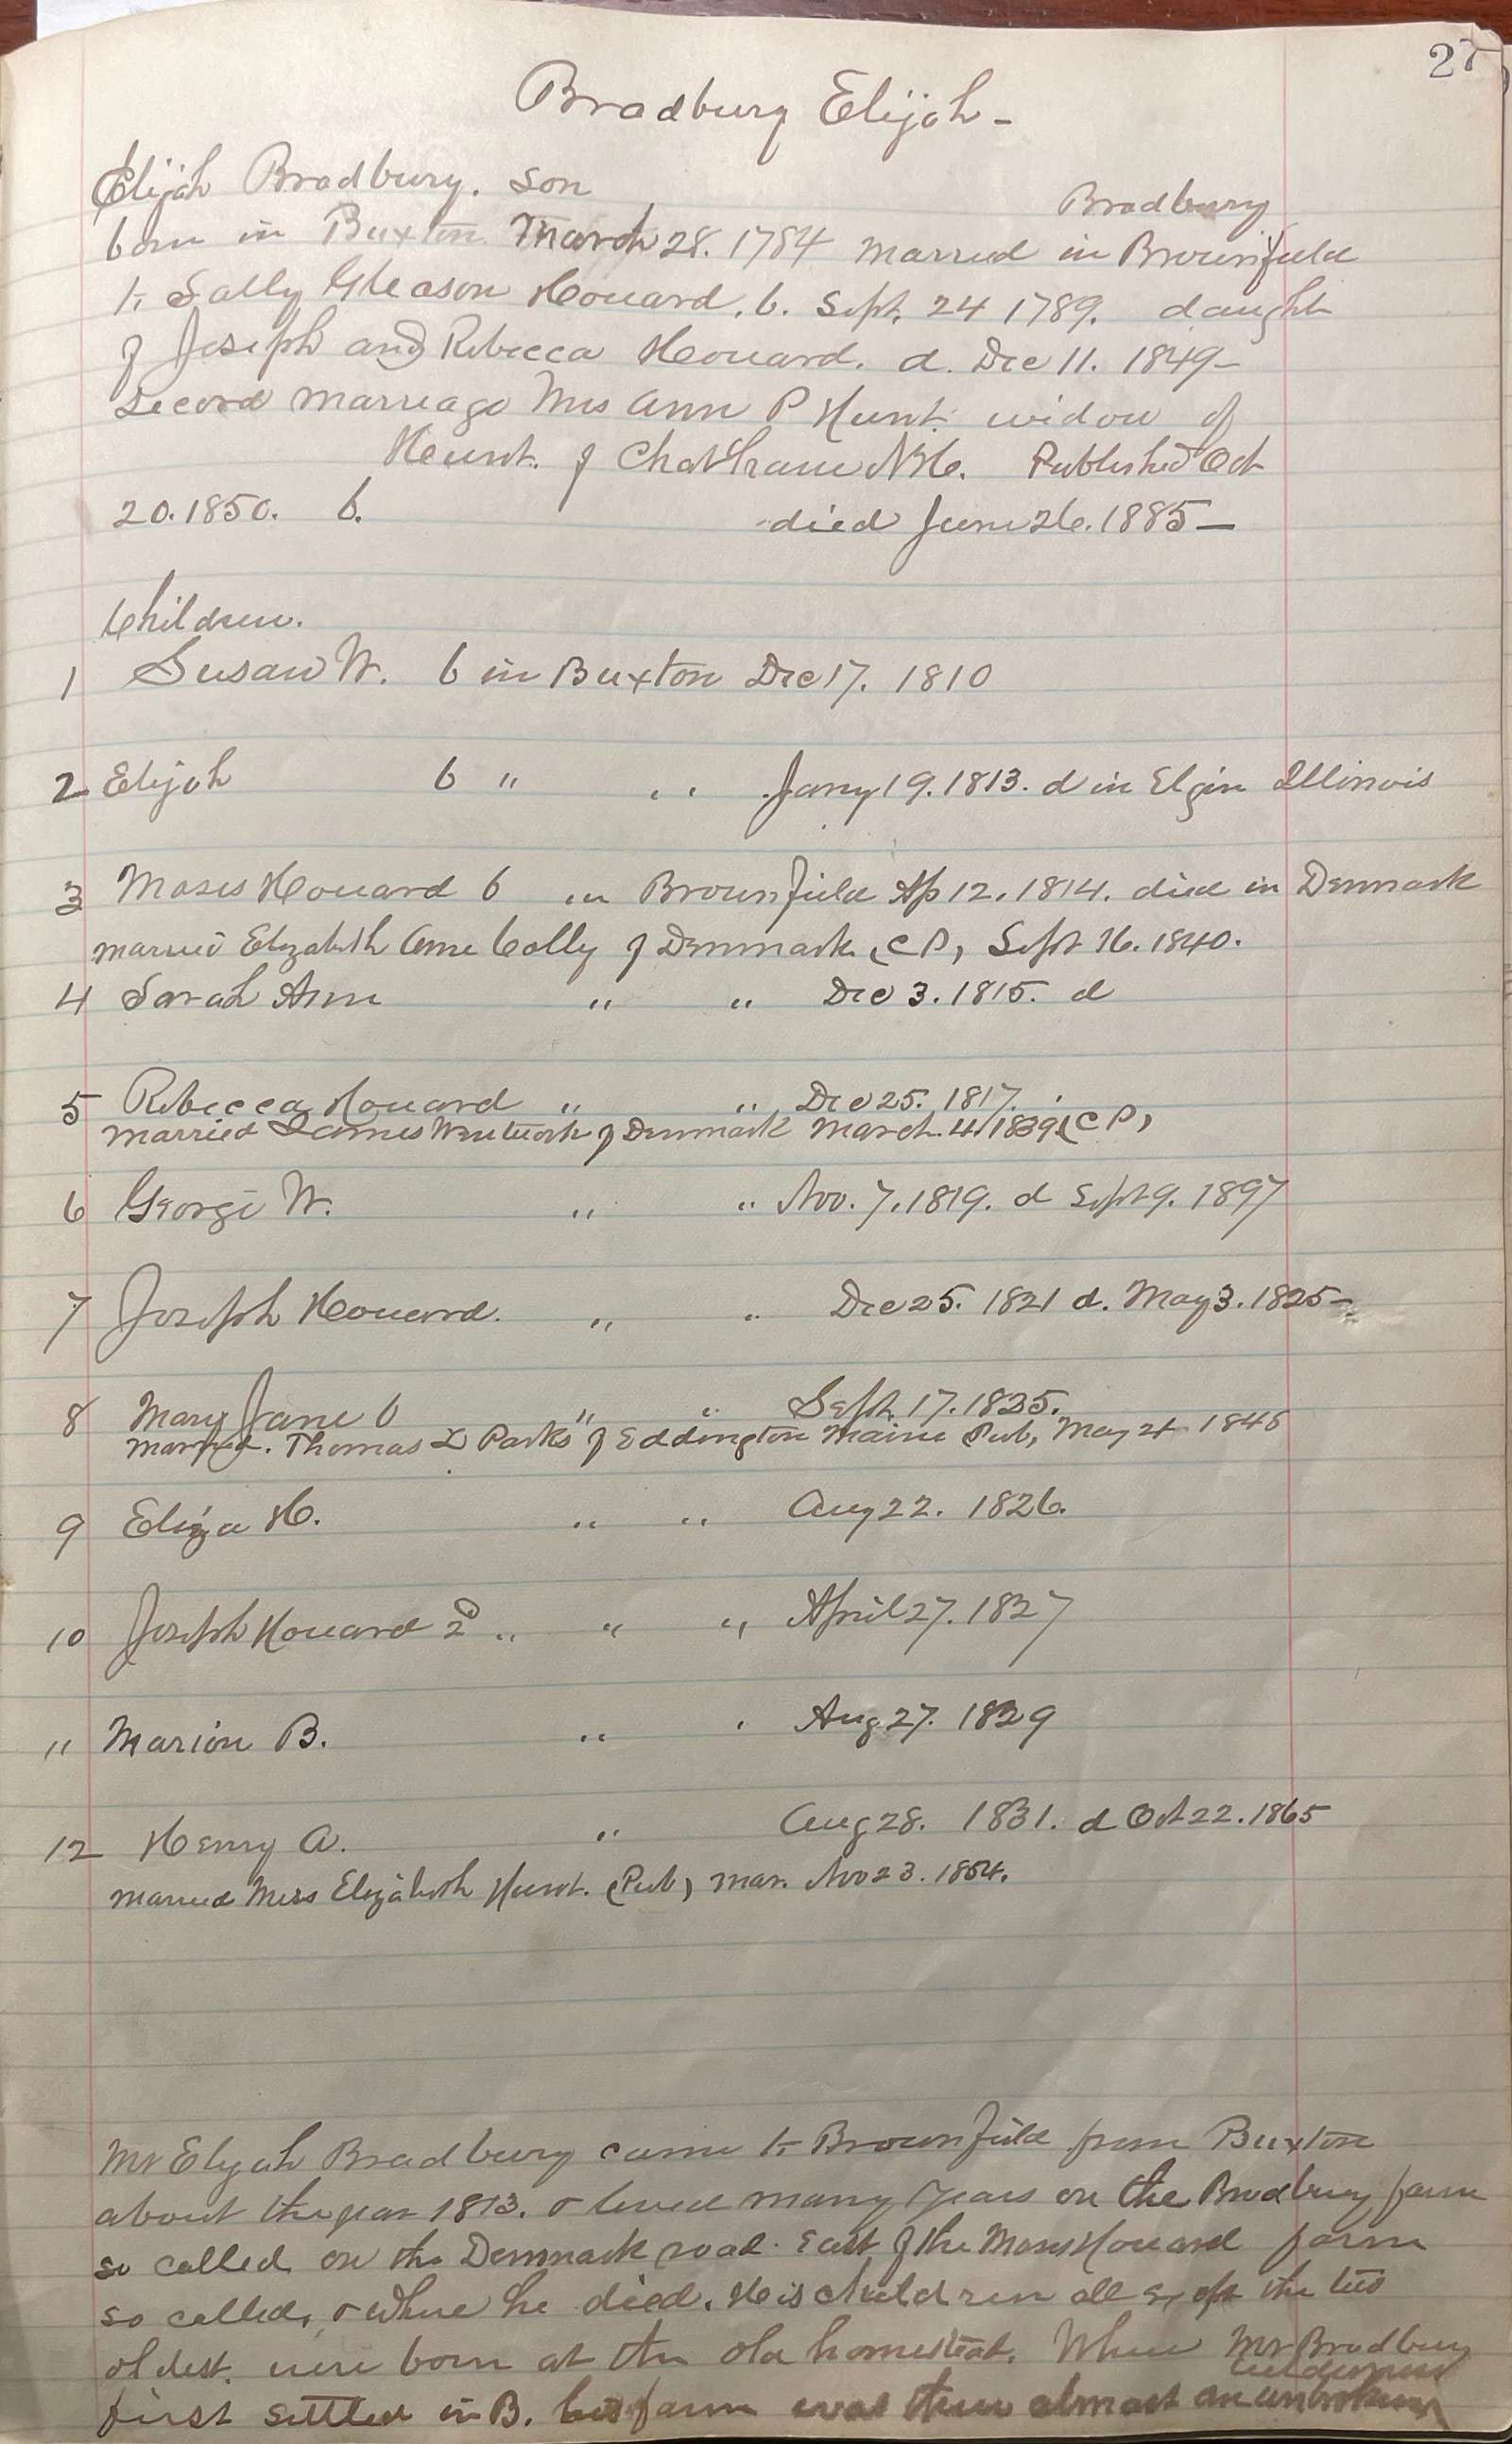 27
Bradbury Elijah -
Elijah Bradbury. Son
Bradbury
born in Buxton March 28. 1784 married in Brownfield
to Sally Gleason Howard. b. Sept. 24 1789. daught
of Joseph and Rebecca Howard. d. Dec 11. 1849 -
Second marriage Mrs Ann P Hunt. widow of
Hunt. of Chatham N.H. Published Oct
20. 1850. b. died June 26. 1885 -
Children.
1 Susan W. b in Buxton Dec 17. 1810
2 Elijah b " " Jany 19. 1813. d in Elgin Illinois
3 Moses Howard b in Brownfield Ap 12. 1814. died in Denmark
married Elizabeth Ann Colly of Denmark (C P) Sept 16. 1840.
4 Sarah Ann " " Dec 3. 1815. d
5 Rebecca Howard " " Dec 25. 1817.
married James Wentworth of Denmark March 4 1839 (C P)
6 George W. " " Nov. 7. 1819. d Sept 9. 1897
7 Joseph Howard. " " Dec 25. 1821 d. May 3. 1825 -
8 Mary Jane b " " Sept. 17. 1825.
married. Thomas D Parks of Eddington Maine Pub, May 4 1845
9 Eliza H. " " Aug 22. 1826.
10 Joseph Howard 2d " " " April 27. 1827
11 Marion B. " " Aug 27. 1829
12 Henry A. " Aug 28. 1831. d Oct 22. 1865
married Miss Elizabeth Hunt. (Pub) mar. Nov 23. 1854.
Mr Elijah Bradbury came to Brownfield from Buxton
about the year 1813. & lived many years on the Bradbury farm
so called on the Denmark road. East of the Moses Howard farm
so called, & where he died. His children all except the two
oldest. were born at the old homestead. When Mr Bradbury
first settled in B. his farm was then almost an unbroken
wilderness